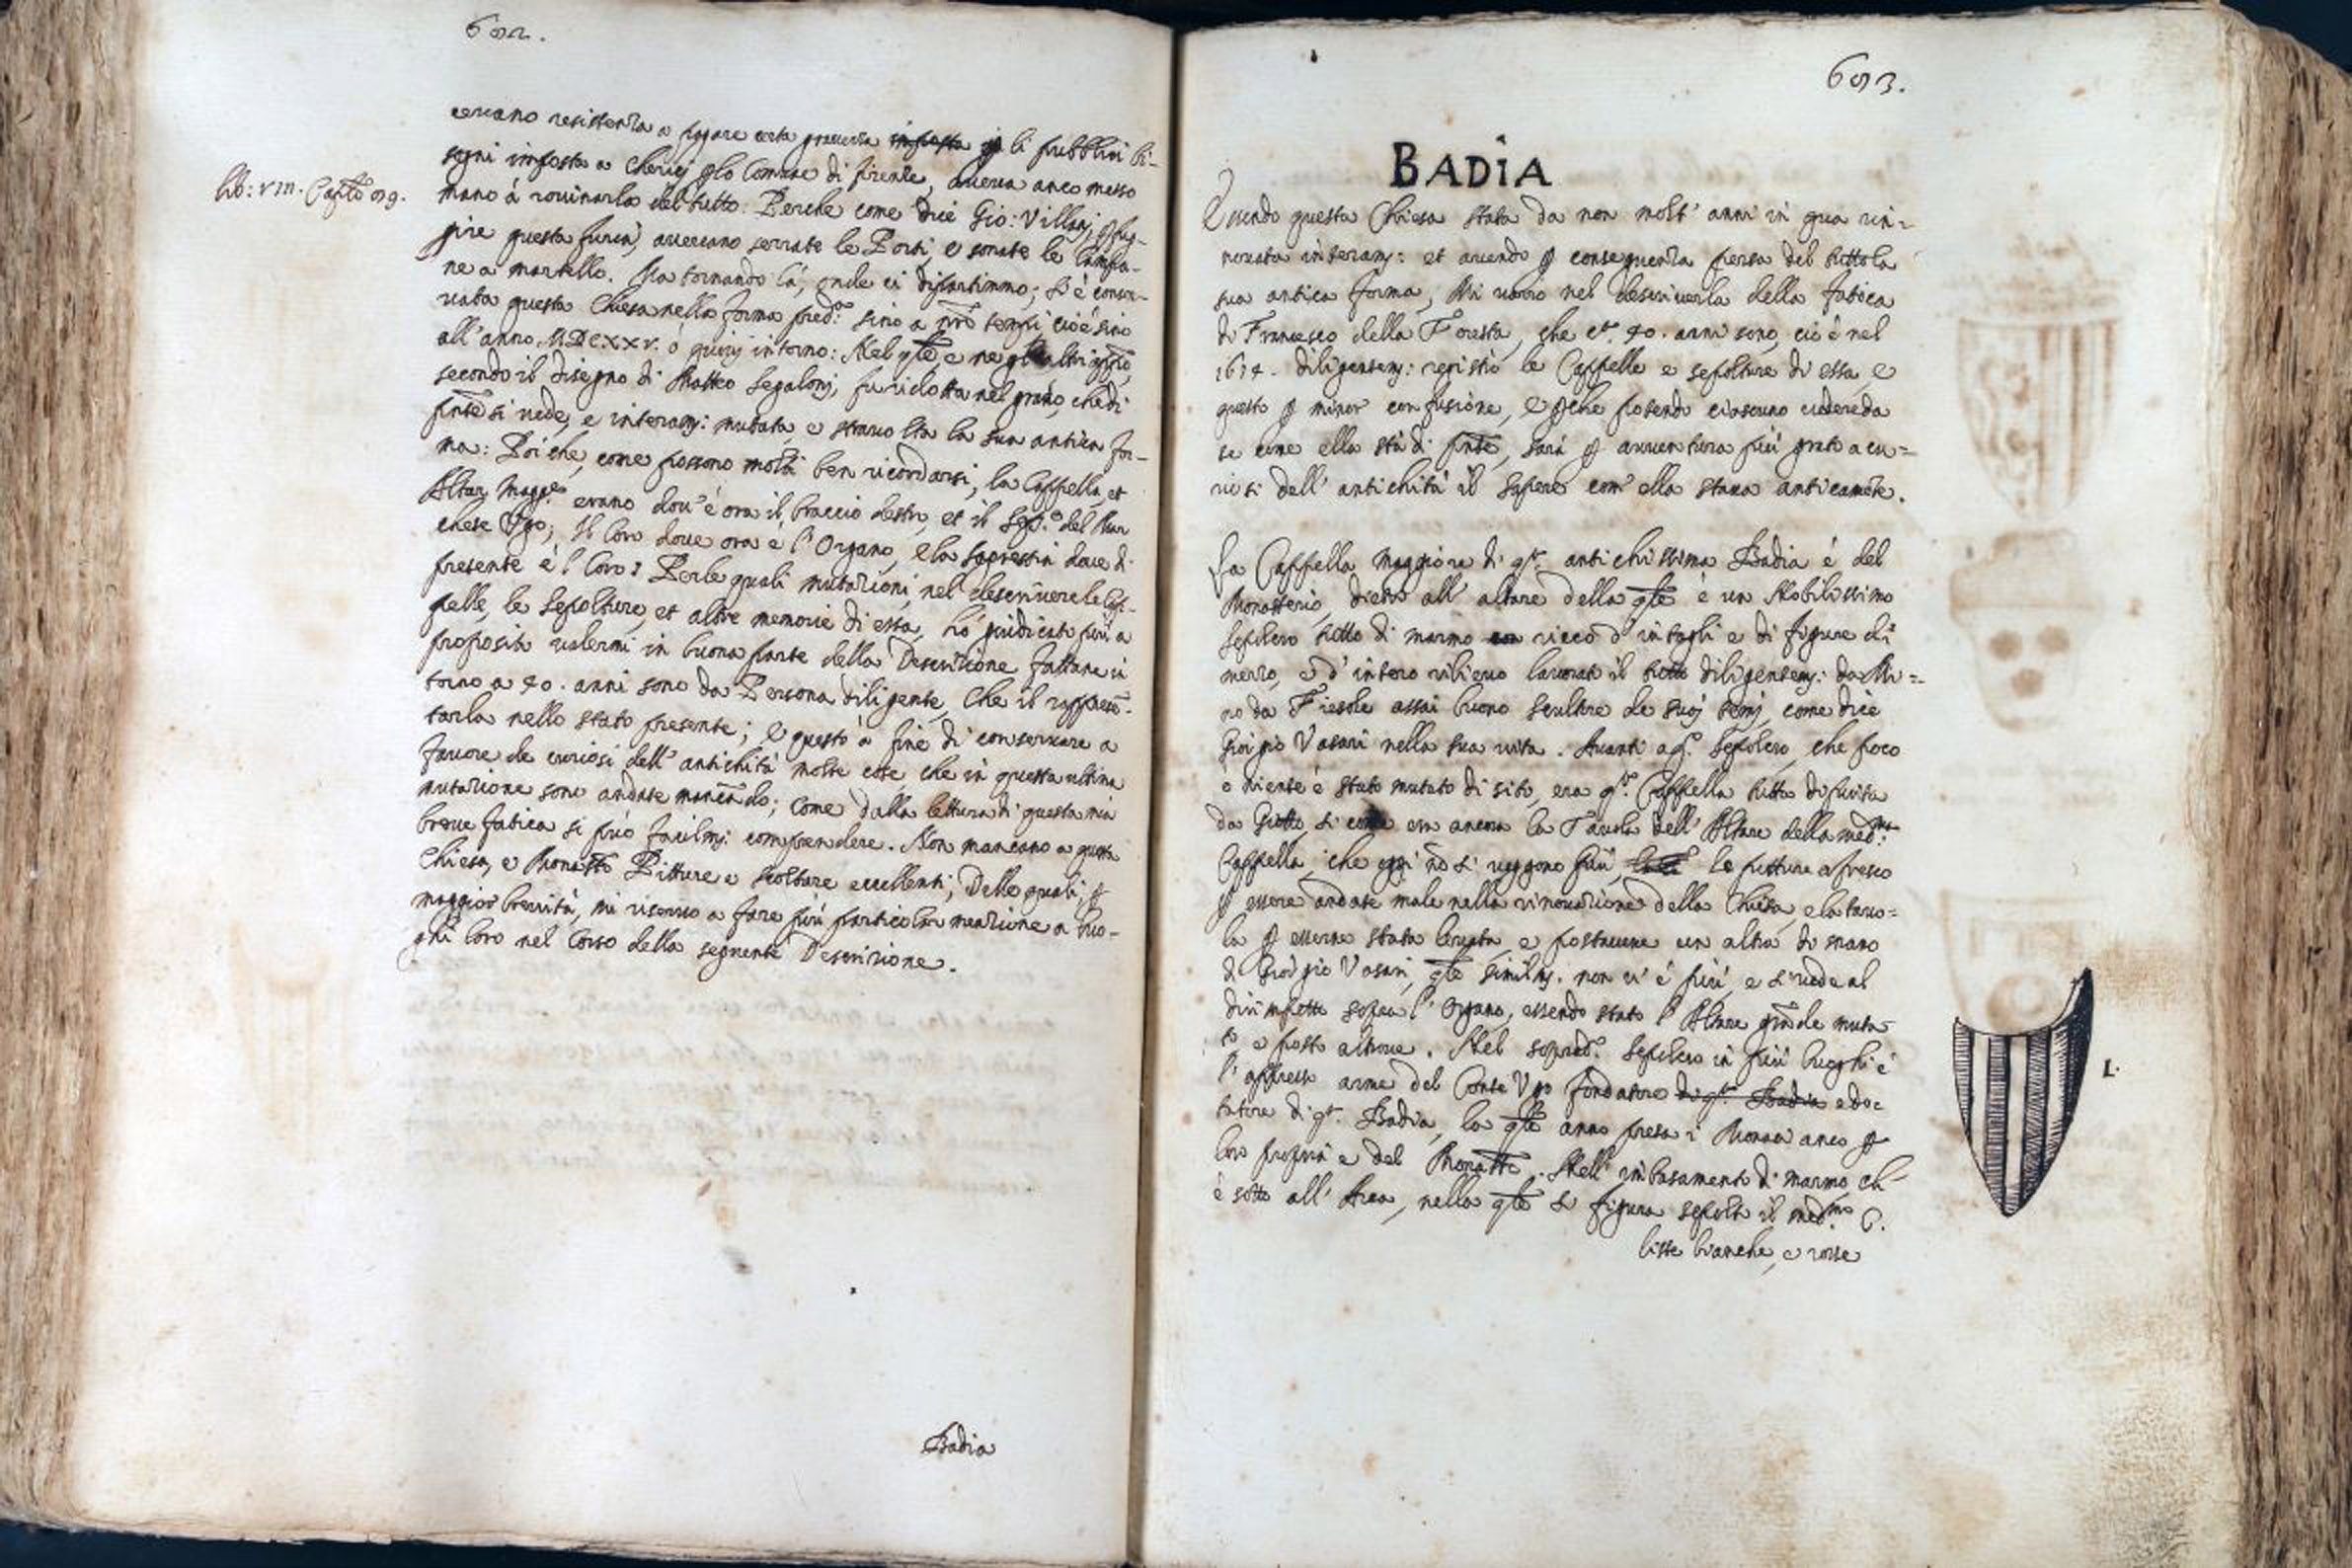 692.
cevano resistenza a pagare certa gravezza imposta p li pubblici bi-
segni imposta a Cherici p lo Comune di firenze, aveva anco messo
lib: VIII. Capto 89.
mano à rovinarla del tutto. Perche come dice Gio: Villani, p fug-
gire questa furia, avevano serrate le Porti, e sonate le Campa-
ne a martello. Ma tornando là, onde ci dipartimmo; S'è conser-
vata questa Chiesa nella forma pred.a sino a nrõ tempi, cioè sino
all'anno MDCXXV. ó quivi intorno: Nel qle, e ne gli altri
secondo il disegno di Matteo Segalonj, fu ridotta nel grado, che di
pnte si vede, e interamj: mutata, e stravolta la sua antica for-
ma: Poiche, come possono molti ben ricordarsi, la Cappella, et
Altar Magg.e erano dov'è ora il braccio destro, et il Sep.o del Mar
chese Ugo; Il Coro dove ora e l'Organo, e la sagrestia dove di
presente è l Coro: Per le quali mutazioni nel descrivere le Cap-
pelle, le Sepolture, et altre memorie di essa, hò giudicato più a
proposito valermi in buona parte della Descrizione fattane in
torno a 40. anni sono da Persona diligente, che il rappresẽ-
tarla nello stato presente; e questo à fine di conservare a
favore de curiosi dell'antichità molte cose che in questa ultima
mutazione sono andate mancãdo; come dalla lettura di questa mia
breve fatica si può facilmj: comprendere. Non mancano a questa
Chiesa, e Monasto Pitture e scolture eccellenti; Delle quali, p
maggior brevità, mi riservo a fare più particolar menzione a luo-
ghi loro nel corso della seguente Descrizione.
Badia
693.
BADIA
Essendo questa Chiesa stata da non molt'anni in qua rin-
novata interamj: et avendo p conseguenza persa del tutto la
sua antica forma, Mi varro nel descriverla della fatica
di Francesco della Foresta, che c.a 40. anni sono, ciò è nel
1614. diligentemj: registrò le Cappelle e sepolture di essa, e
questo p minor confusione, e pche potendo ciascuno vedere da
se come ella stà di pnte, sarà p avventura più grato a cu-
riosi dell'antichità il sapere com'ella stava anticamte.
La Cappella Maggiore di q.a antichissima Badia è del
Monasterio, dietro all'altare della qle è un Nobilissimo
Sepolcro tutto di marmo con ricco d'intagli e di figure di
mezzo, e d'intero rilievo lavorati il tutto diligentemj: da Mi-
no da Fiesole assai buono scultore de suoj tempj, come dice
Giorgio Vasari nella sua vita. Avanti a q.o Sepolcro, che poco
ò niente è stato mutato di sito, era q.a Cappella tutta dipinta
da Giotto, si come era ancora la Tavola dell'Altare della med.ma
Cappella, che oggi nõ si veggono più, le pitture a fresco
p essere andate male nella rinovazione della Chiesa, e la tavo-
la p esserne stata levata, e postavene un altra di mano
di Giorgio Vasari, qle similmj. non vi è più, e si vede al
dirimpetto sopra l'Organo, essendo stato l'Altare grãde muta-
to e posto altrove. Nel soprad.o Sepolcro in più luoghi è
l'appressa arme del Conte Ugo fondatore di q.a Badia e do-
tatore di q.a Badia, la qle anno presa i Monaci anco p
loro propria e del Monasto. Nell'imbasamento di marmo ch'
è sotto all'Arca, nella qle si figura sepolto il med.mo C.
liste bianche, e rosse
1.